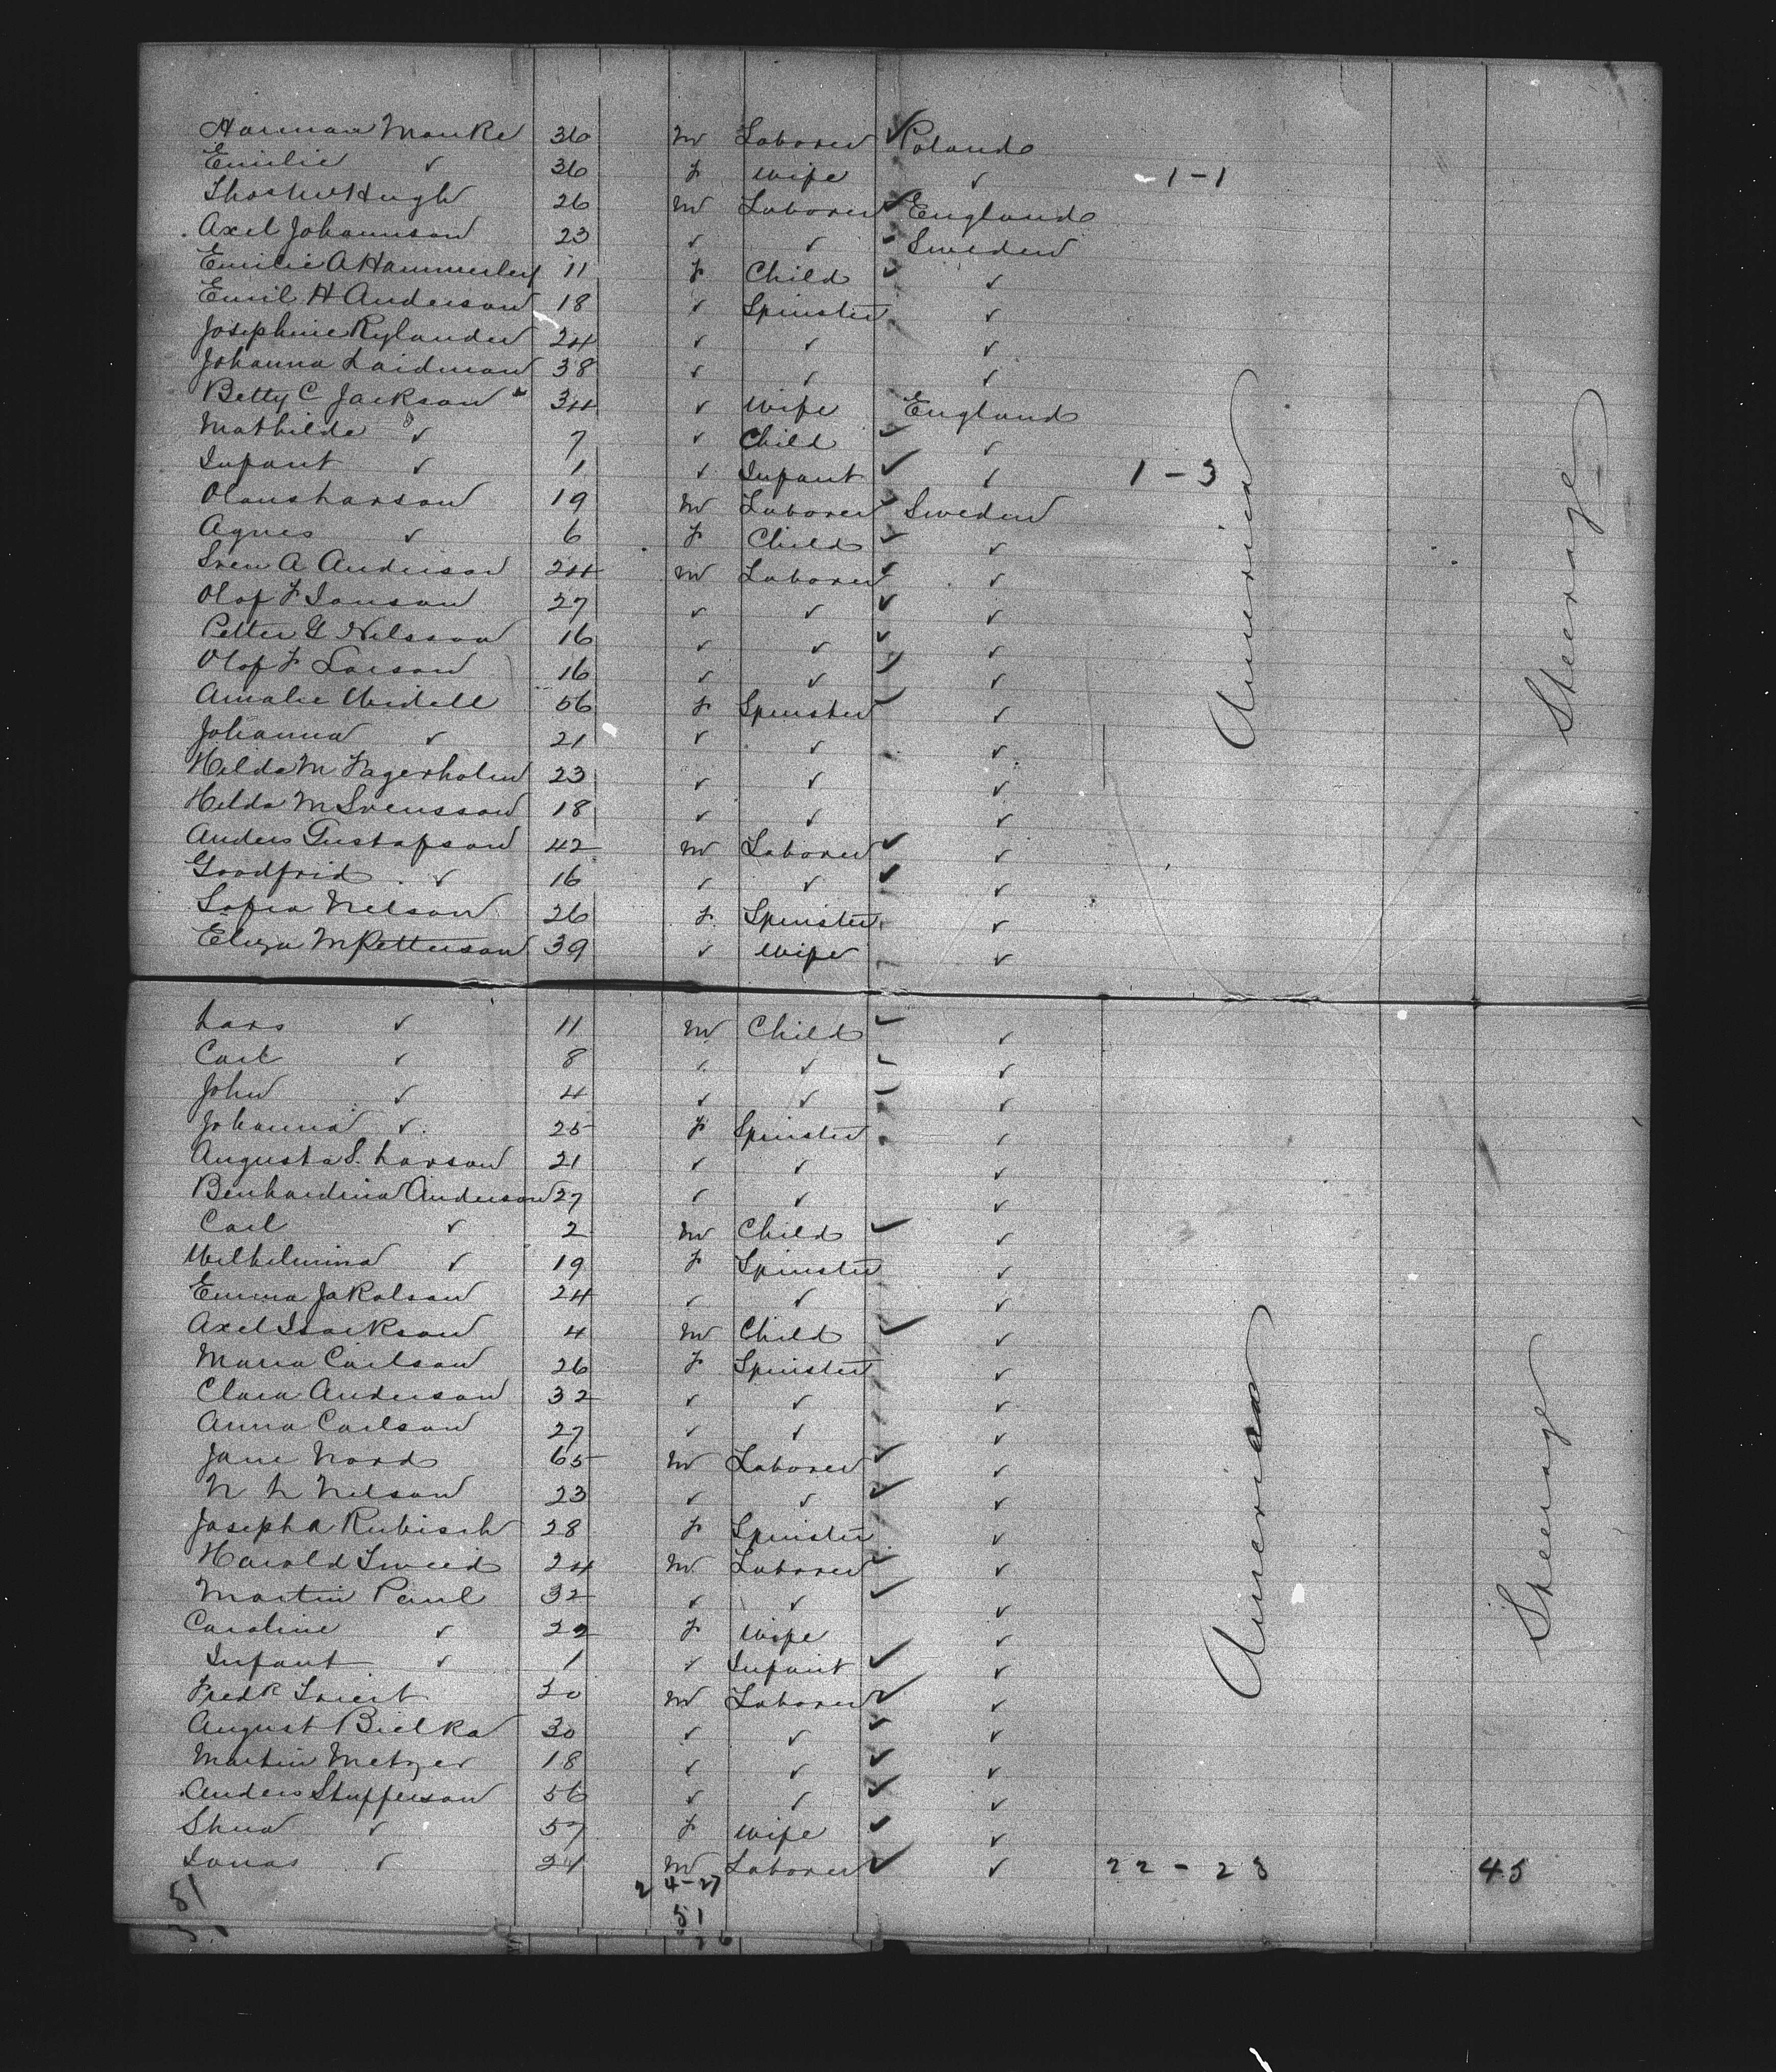 Herman Manke 36 M Laborer ✓ Poland
Emilie ✓ 36 F Wife ✓ 1-1
Thos McHugh 26 M Laborer ✓ England
Axel Johannson 23 ✓ ✓ ✓ Sweden
Emilie A Hammerlef 11 F Child ✓ ✓
Emil H Anderson 18 ✓ Spinster ✓
Josephine Rylander 24 ✓ ✓ ✓
Johanna Laidman 38 ✓ ✓ ✓
Betty C Jackson 34 ✓ Wife England
Mathilde ✓ 7 ✓ Child ✓ ✓
Infant ✓ 1 ✓ Infant ✓ ✓ 1-3
Olaus Larson 19 M Laborer ✓ Sweden
Agnes ✓ 6 F Child ✓ ✓
Sven A Anderson 24 M Laborer ✓ ✓
Olof F Ionson 27 ✓ ✓ ✓ ✓
Petter G Nilsson 16 ✓ ✓ ✓ ✓
Olof F Larson 16 ✓ ✓ ✓ ✓
Amalie Widell 56 F Spinster ✓ ✓
Johanna ✓ 21 ✓ ✓ ✓
Hilda M Fagerholm 23 ✓ ✓ ✓
Hilda M Svensson 18 ✓ ✓ ✓
Anders Gustafson 42 M Laborer ✓ ✓
Goodfrid ✓ 16 ✓ ✓ ✓ ✓
Sofia Nelson 26 F Spinster ✓
Eliza M Petterson 39 ✓ Wife ✓
America
Steerage
Lars ✓ 11 M Child ✓ ✓
Carl ✓ 8 ✓ ✓ ✓ ✓
John ✓ 4 ✓ ✓ ✓ ✓
Johanna ✓ 25 F Spinster ✓
Augusta S. Larson 21 ✓ ✓ ✓
Benhardina Anderson 27 ✓ ✓ ✓
Carl ✓ 2 M Child ✓ ✓
Wilhelmina ✓ 19 F Spinster ✓
Emma Jakolson 24 ✓ ✓ ✓
Axel Isackson 4 M Child ✓ ✓
Maria Carlson 26 F Spinster ✓
Clara Anderson 32 ✓ ✓ ✓
Anna Carlson 27 ✓ ✓ ✓
Jane Nord 65 M Laborer ✓ ✓
N N Nelson 23 ✓ ✓ ✓ ✓
Josepha Rubisch 28 F Spinster ✓
Harold Sweed 24 M Laborer ✓ ✓
Martin Paul 32 ✓ ✓ ✓ ✓
Caroline ✓ 22 F Wife ✓
Infant ✓ 1 ✓ Infant ✓ ✓
Fredk 30 M Laborer ✓ ✓
August Bielka 30 ✓ ✓ ✓ ✓
Martin Metzer 18 ✓ ✓ ✓ ✓
Anders Stufferson 56 ✓ ✓ ✓ ✓
✓ 57 F Wife ✓ ✓
Jonas ✓ 21 M Laborer ✓ ✓ 22-23 45
America
Steerage
51 24-27
51